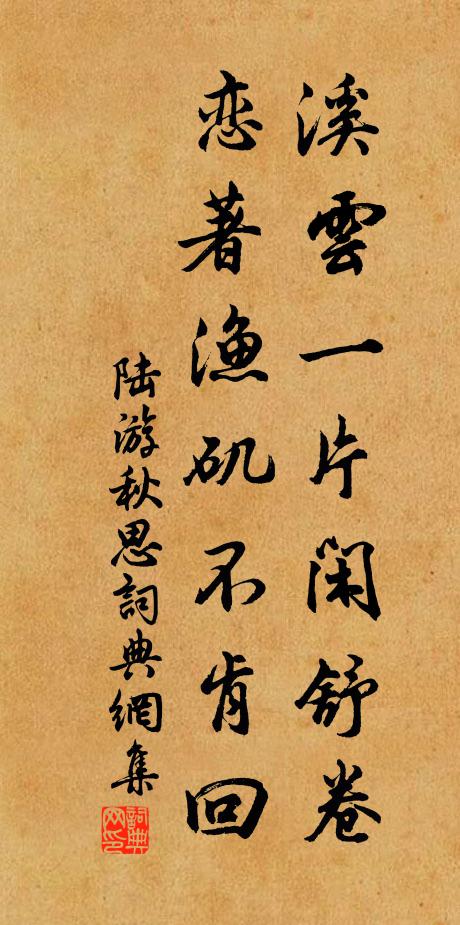 溪雲一片閑舒卷
恋著漁矶不肯回
陆游秋思詞典網集
詞典网印